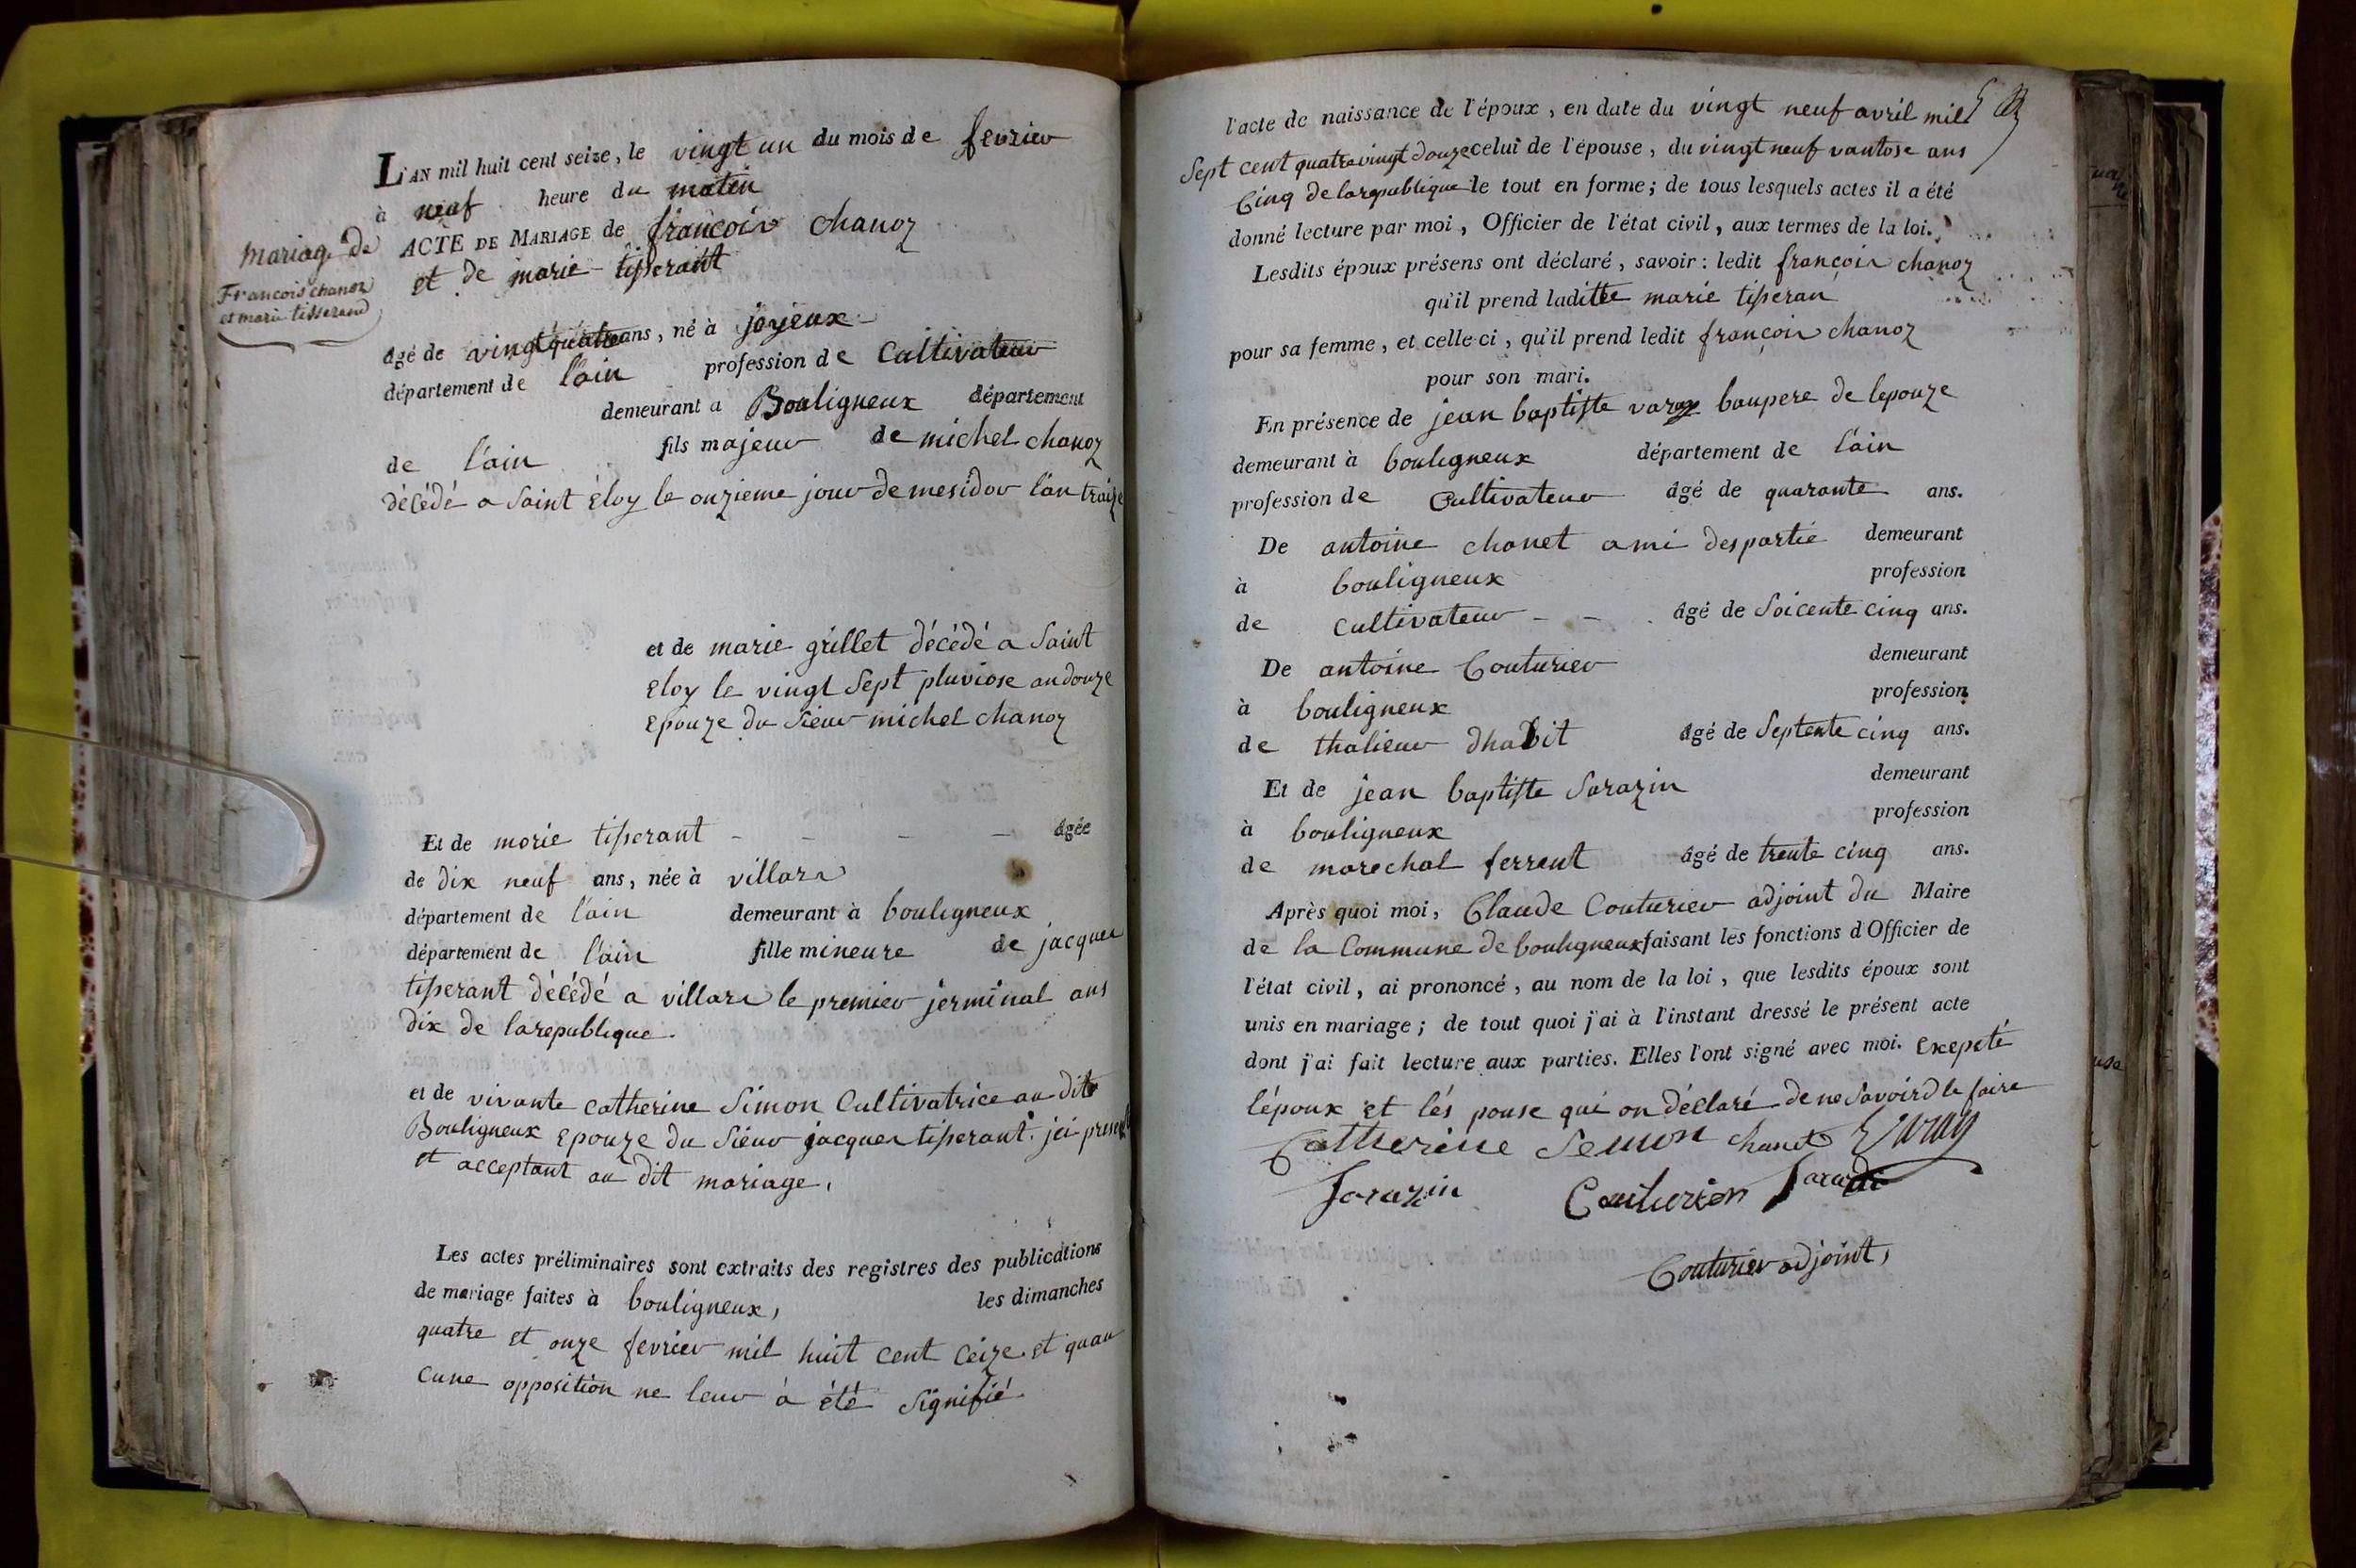 L'AN mil huit cent seize, le vingt un du mois de fevrier
à neuf heure du matin
Mariage de
François chanoz
et marie tisserand
ACTE DE MARIAGE de françois chanoz
et de marie tisserant
âgé de vingt quatre ans, né à joyeux
département de l'ain profession de Cultivateur
demeurant a Bouligneux département
de l'ain fils majeur de michel chanoz
décédé a saint Éloy le onzieme jour de mesidor l'an traize
et de marie grillet décédé a saint
Eloy le vingt sept pluviose an douze
Epouze du sieur michel chanoz
Et de marie tisserant âgée
de dix neuf ans, née à villars
département de l'ain demeurant à bouligneux
département de l'ain fille mineure de jacques
tisserant décédé a villars le premier jerminal ans
dix de la republique.
et de vivante catherine Simon Cultivatrice au dit
Bouligneux Epouze du sieur jacques tisserant. jci present
et acceptant au dit mariage,
Les actes préliminaires sont extraits des registres des publications
de mariage faites à bouligneux, les dimanches
quatre et onze fevrier mil huit cent ceize et quau
cune opposition ne leur à été signifié
l'acte de naissance de l'époux, en date du vingt neuf avril mil
sept cent quatre vingt douze celui de l'épouse, du vingt neuf vantose ans
Cinq de la republique le tout en forme; de tous lesquels actes il a été
donné lecture par moi, Officier de l'état civil, aux termes de la loi.
Lesdits époux présens ont déclaré, savoir: ledit françois chanoz
qu'il prend laditte marie tisseran
pour sa femme, et celle-ci, qu'il prend ledit françois chanoz
pour son mari.
En présence de jean baptiste varay baupere de lepouze
demeurant à bouligneux département de l'ain
profession de Cultivateur âgé de quarante ans.
De antoine chanet ami des partie demeurant
à bouligneux profession
de cultivateur âgé de soicente cinq ans.
De antoine Couturier demeurant
à bouligneux profession
de thalieur dhabit âgé de septente cinq ans.
Et de jean baptiste Sarazin demeurant
à bouligneux profession
de marechal ferrent âgé de trente cinq ans.
Après quoi moi, Claude Couturier adjoint du Maire
de la Commune de bouligneux faisant les fonctions d'Officier de
l'état civil, ai prononcé, au nom de la loi, que lesdits époux sont
unis en mariage; de tout quoi j'ai à l'instant dressé le présent acte
dont j'ai fait lecture aux parties. Elles l'ont signé avec moi. Exepeté
lépoux et lés pouse qui on déclaré de ne savoir le faire
Catherine Semon chanet varay
Sarazin Couturier
Couturier adjoint,